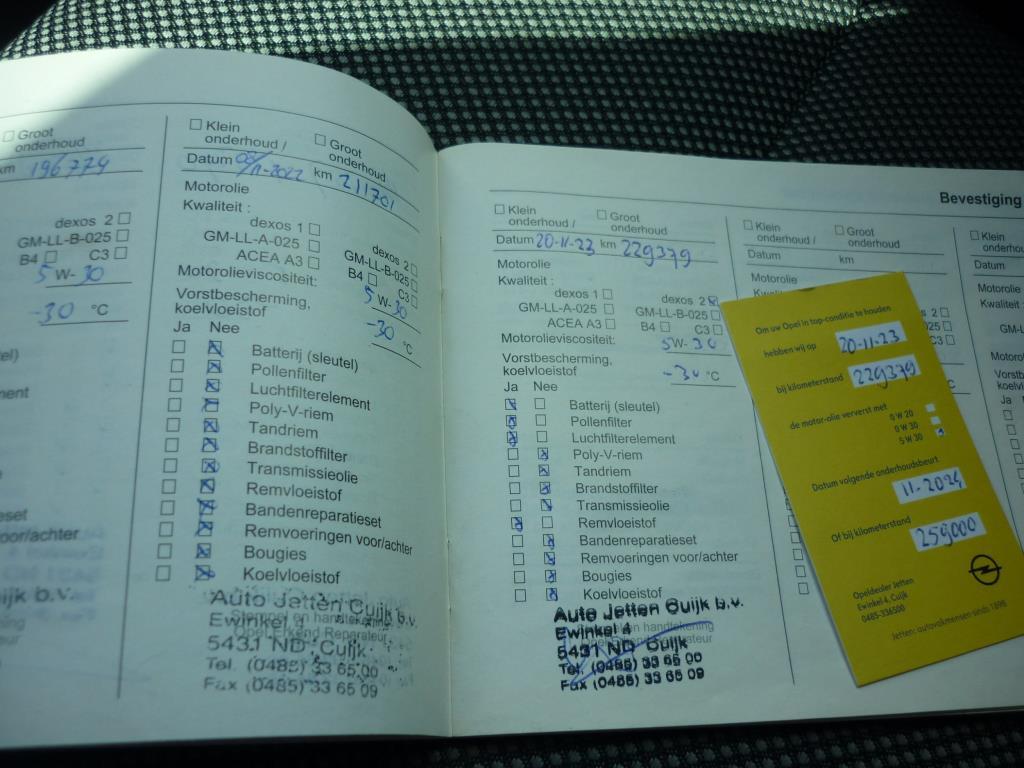 Groot
onderhoud
km 196774
dexos 2
GM-LL-B-025
B4 C3
5 W-30
-30 °C
Klein
onderhoud /
Groot
onderhoud
Datum 08/11-2022 km 211701
Motorolie
Kwaliteit :
dexos 1
dexos 2
GM-LL-A-025
GM-LL-B-025
ACEA A3
B4 C3
Motorolieviscositeit:
5 W-30
Vorstbescherming,
koelvloeistof
-30 °C
Ja Nee
Batterij (sleutel)
Pollenfilter
Luchtfilterelement
Poly-V-riem
Tandriem
Brandstoffilter
Transmissieolie
Remvloeistof
Bandenreparatieset
Remvoeringen voor/achter
Bougies
Koelvloeistof
Auto Jetten Cuijk b.v.
Ewinkel 4
Opel Erkend Reparateur
5431 ND Cuijk
Tel. (0485) 33 65 00
Fax (0485) 33 65 09
Bevestiging
Klein
onderhoud /
Groot
onderhoud
Datum 20-11-23 km 229379
Motorolie
Kwaliteit :
dexos 1
dexos 2
GM-LL-A-025
GM-LL-B-025
ACEA A3
B4 C3
Motorolieviscositeit:
5 W-30
Vorstbescherming,
koelvloeistof
-30 °C
Ja Nee
Batterij (sleutel)
Pollenfilter
Luchtfilterelement
Poly-V-riem
Tandriem
Brandstoffilter
Transmissieolie
Remvloeistof
Bandenreparatieset
Remvoeringen voor/achter
Bougies
Koelvloeistof
Auto Jetten Cuijk b.v.
Ewinkel 4
handtekening
5431 ND Cuijk
Tel. (0485) 33 65 00
Fax (0485) 33 65 09
Klein
onderhoud /
Groot
onderhoud
Datum km
Motorolie
Klein
onderhoud
Datum
Motorolie
Kwaliteit
Ja
Om uw Opel in top-conditie te houden
hebben wij op 20-11-23
bij kilometerstand 229379
de motor-olie ververst met
0 W 20
0 W 30
5 W 30
Datum volgende onderhoudsbeurt
11-2024
Of bij kilometerstand
259000
Opeldealer Jetten
Ewinkel 4, Cuijk
0485-336500
Jetten: autovakmensen sinds 1898